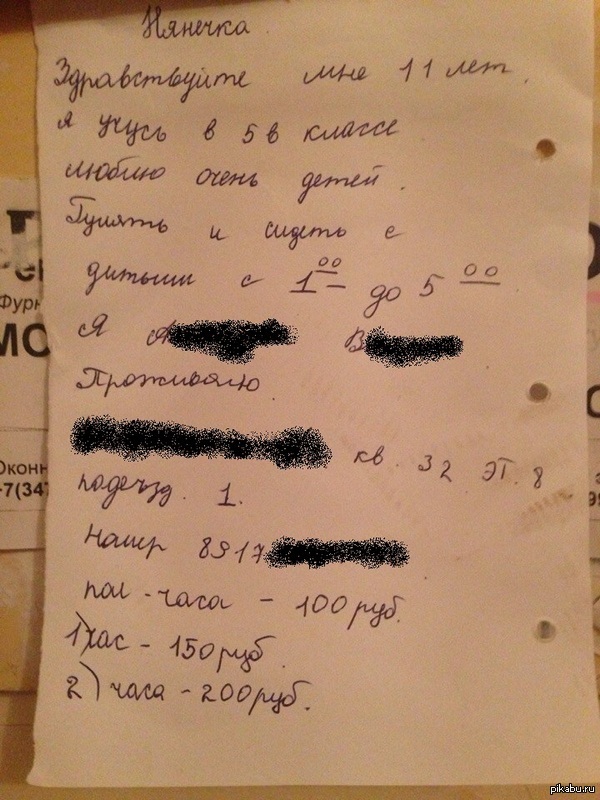 Нянечка
Здравствуйте мне 11 лет.
я учусь в 5в классе
люблю очень детей.
Гулять и сидеть с
дитьми с 1 00 до 5 00
Я А В
Проживаю
кв. 32 эт. 8
подезд. 1.
Намер 8917
пол-часа - 100 руб.
1) час - 150 руб.
2) часа - 200 руб.
Фурн
МО
Оконн
+7(347
pikabu.ru